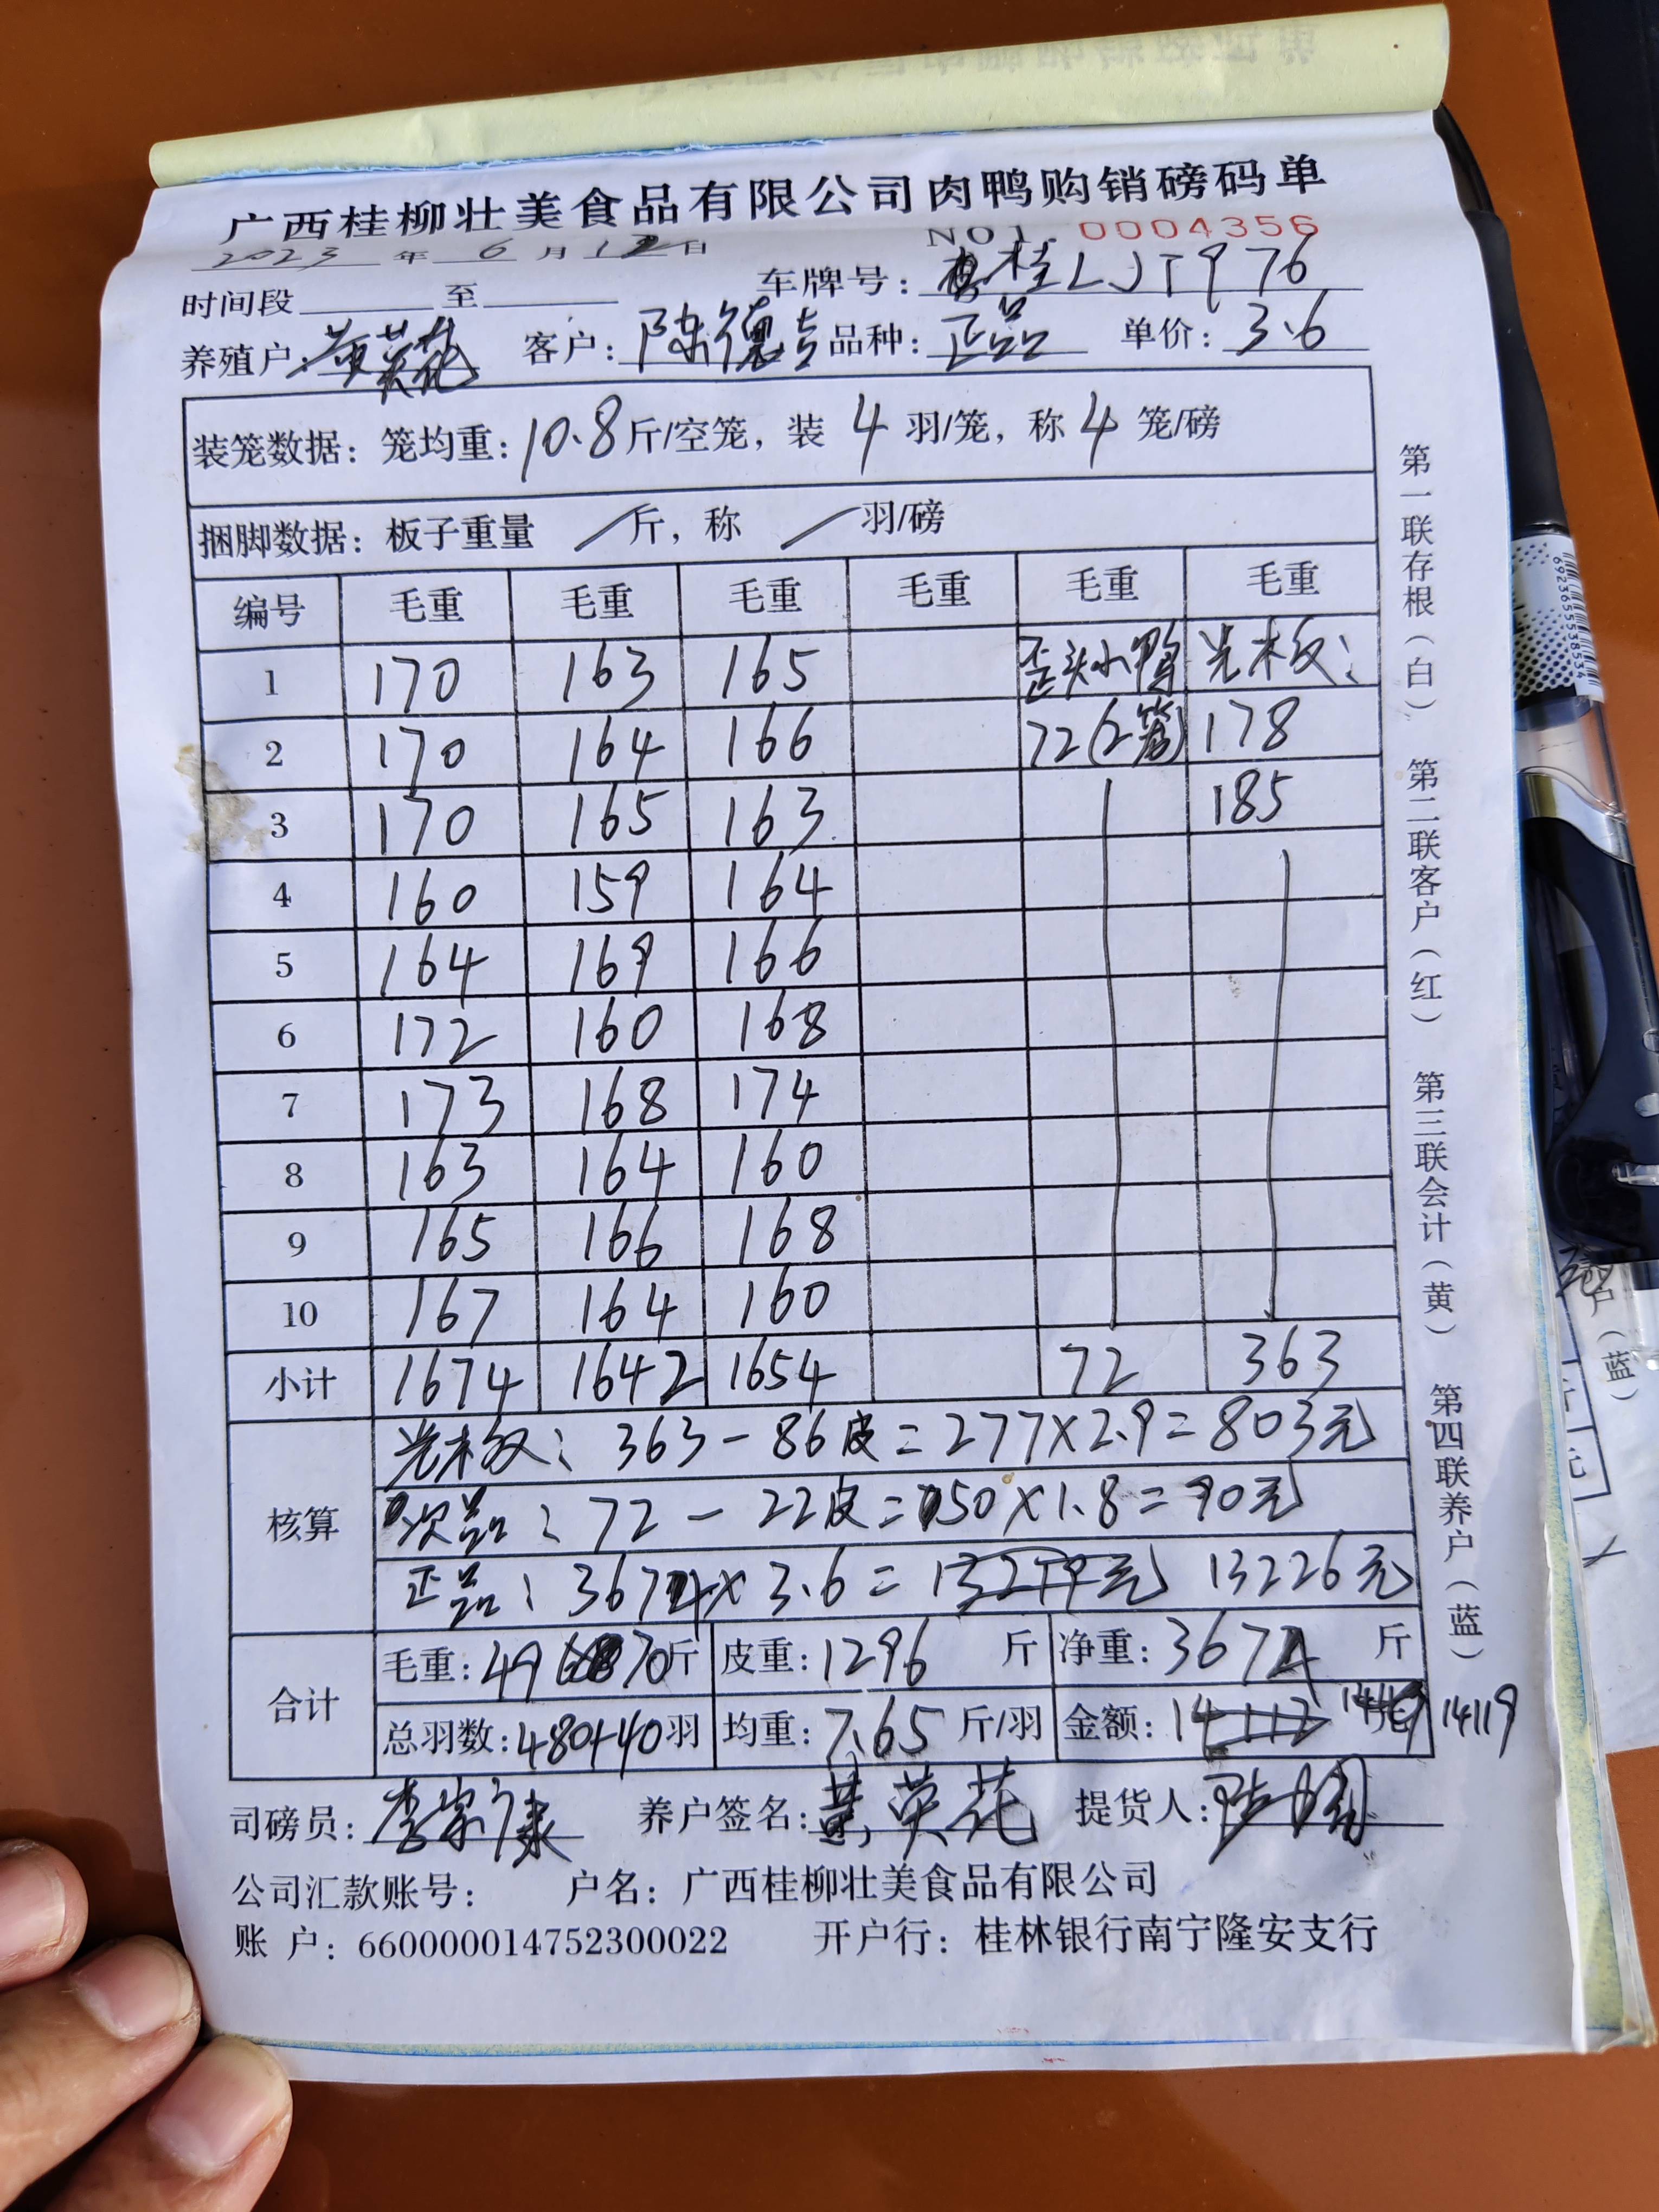 广西桂柳壮美食品有限公司肉鸭购销磅码单
2023年6月12日 NO1.0004356
时间段 至 车牌号：桂LJT976
养殖户：黄英花 客户：陈德吉 品种：正品 单价：3.6
装笼数据：笼均重：10.8斤/空笼，装 4 羽/笼，称 4 笼/磅
捆脚数据：板子重量 / 斤，称 / 羽/磅
编号 毛重 毛重 毛重 毛重 毛重 毛重
1 170 163 165 歪头小鸭 光木板：
2 170 164 166 72(2笼) 178
3 170 165 163 185
4 160 159 164
5 164 169 166
6 172 160 168
7 173 168 174
8 163 164 160
9 165 166 168
10 167 164 160
小计 1674 1642 1654 72 363
核算
光木板：363-86皮=277×2.9=803元
次品：72-22皮=50×1.8=90元
正品：3674×3.6= 13226元
合计
毛重：4970斤 皮重：1296 斤 净重：3674 斤
总羽数：480+40羽 均重：7.65斤/羽 金额：14119
司磅员：李宗康 养户签名：黄英花 提货人：
公司汇款账号： 户名：广西桂柳壮美食品有限公司
账 户：660000014752300022 开户行：桂林银行南宁隆安支行
第一联存根（白） 第二联客户（红） 第三联会计（黄） 第四联养户（蓝）
户（蓝）
6923655538534